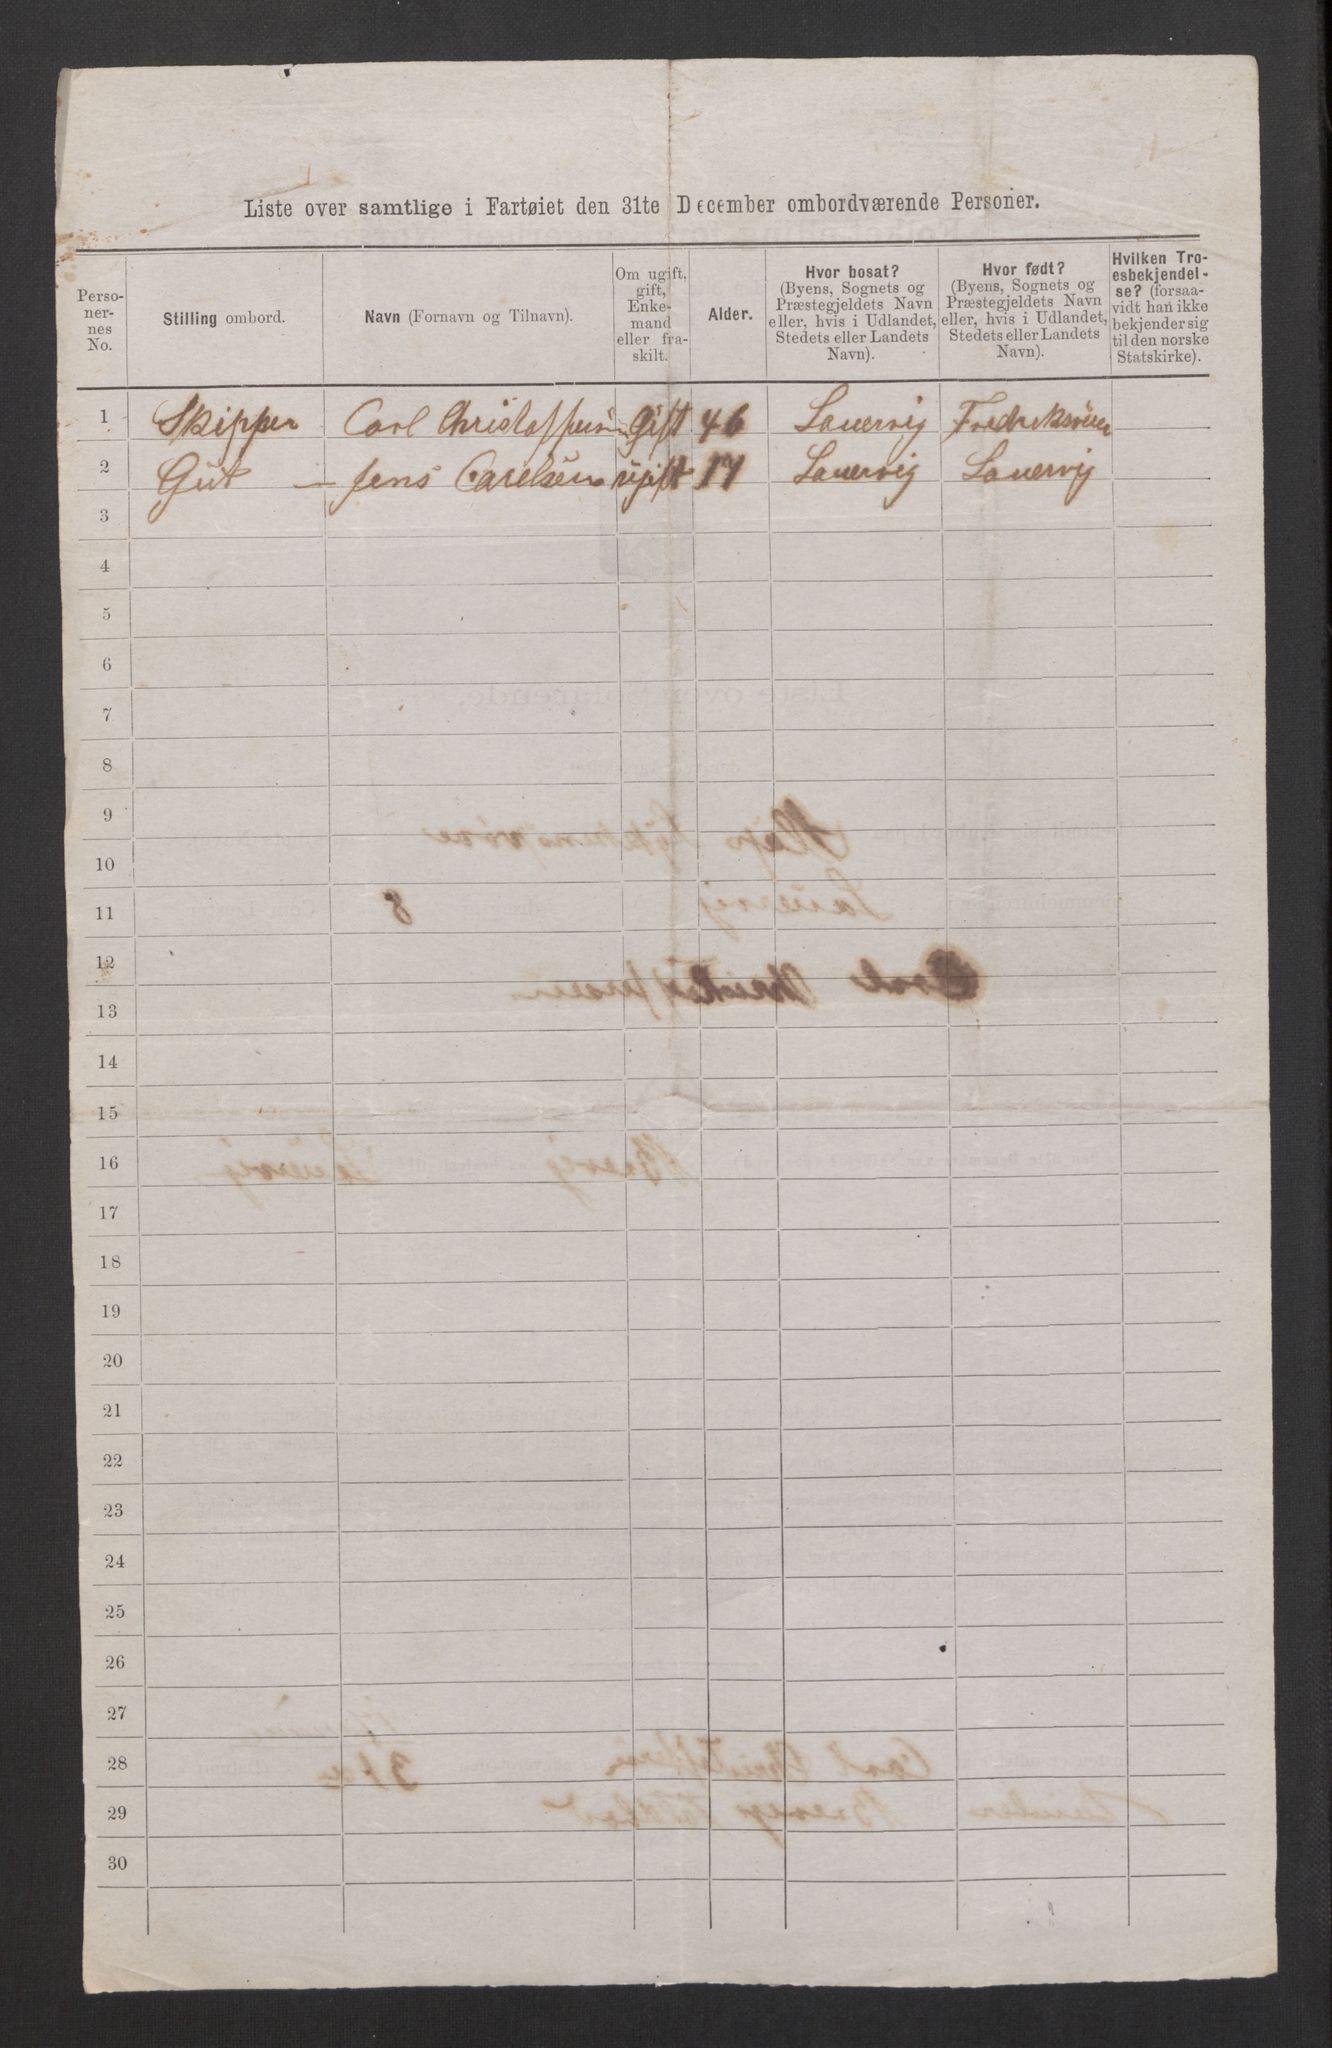 Liste over samtlige i Fartøiet den 31te December ombordværende Personer.
Perso-
ner-
nes
No.
Stilling ombord.
Navn (Fornavn og Tilnavn).
Om ugift,
gift,
Enke-
mand
eller fra-
skilt.
Alder.
Hvor bosat?
(Byens, Sognets og
Præstegjeldets Navn
eller, hvis i Udlandet,
Stedets eller Landets
Navn).
Hvor født?
(Byens, Sognets og
Præstegjeldets Navn
eller, hvis i Udlandet,
Stedets eller Landets
Navn).
Hvilken Tro-
esbekjendel-
se? (forsaa-
vidt han ikke
bekjender sig
til den norske
Statskirke).
1 Skipper Carl Christoffersen Gift 46 Lauervig
2 Gut – Jens Carelsen ugift 17 Lauervig Lauervig
3
4
5
6
7
8
9
10
11
12
13
14
15
16
17
18
19
20
21
22
23
24
25
26
27
28
29
30